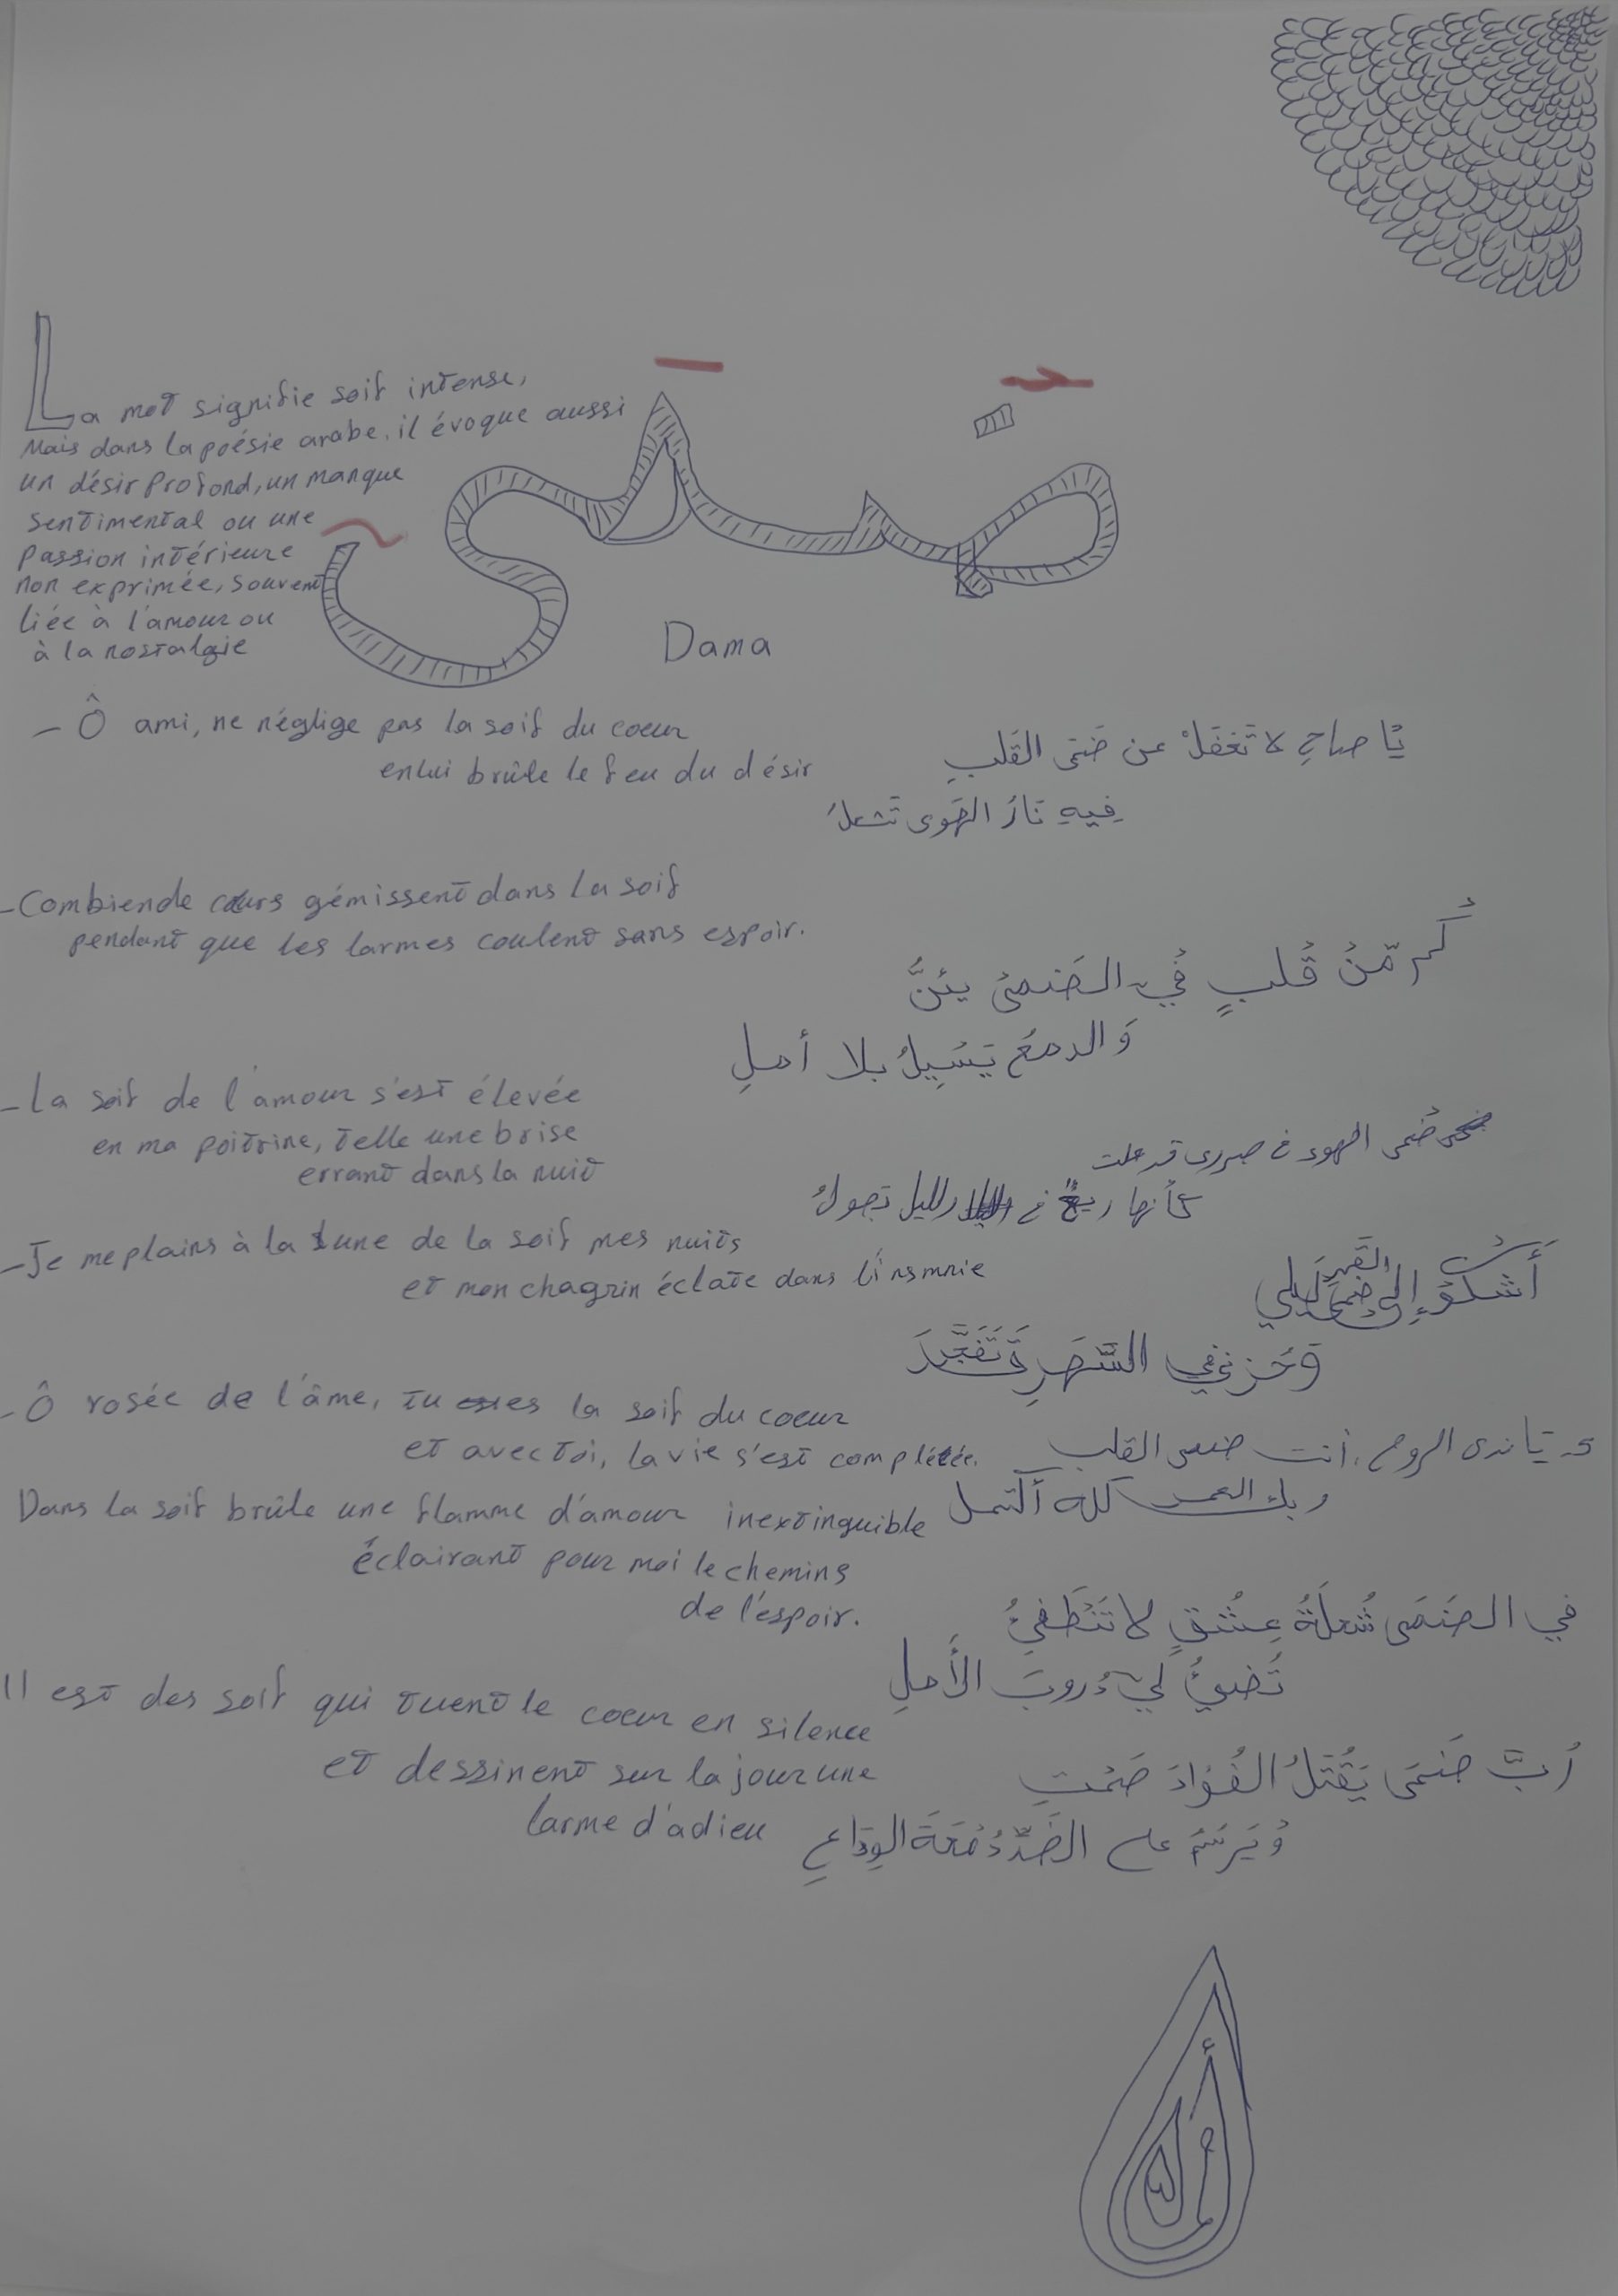 La mot signifie soif intense,
Mais dans la poésie arabe, il évoque aussi
un désir profond, un manque
sentimental ou une
passion intérieure
non exprimée, souvent
liée à l'amour ou
à la nostalgie
ضمى
Dama
- Ô ami, ne néglige pas la soif du coeur
en lui brûle le feu du désir
يَا صاحِ لا تَغفَلْ عن ضَمَى القَلبِ
فِيهِ نَارُ الهَوى تَشعلُ
- Combien de cœurs gémissent dans la soif
pendant que les larmes coulent sans espoir.
كم مّنْ قَلبٍ في الضَمىْ يئنُّ
وَالدمعُ يَسِيلُ بلا أملِ
- La soif de l'amour s'est élevée
en ma poitrine, telle une brise
errant dans la nuit
ضمى الهوى في صدري قد علت
كأنها ريح في الليل تجولُ
- Je me plains à la lune de la soif mes nuits
et mon chagrin éclate dans l'insmnie
أَشكُوْ إلى القَمَرِ ضَمَى لَيلي
وَحَزني في السَّهَرِ تَفَجَّرَ
- Ô rosée de l'âme, tu es la soif du coeur
et avec toi, la vie s'est complétée.
يَا ندى الروح، أنت ضمى القلب
وبك العمر كله أكتمل
Dans la soif brûle une flamme d'amour inextinguible
éclairant pour moi le chemins
de l'espoir.
في الضَمَى شُعلَةُ عِشْقٍ لا تَنْطَفِئُ
تُضيئُ لي دُروبَ الأَملِ
Il est des soif qui tuent le coeur en silence
et dessinent sur la jour une
larme d'adieu
رُبَّ ضَمَى يَقْتلُ الفُؤادَ صَمْتِ
وُيَرسُمُ على دَمْعَةَ الوِدَاعِ
أمل